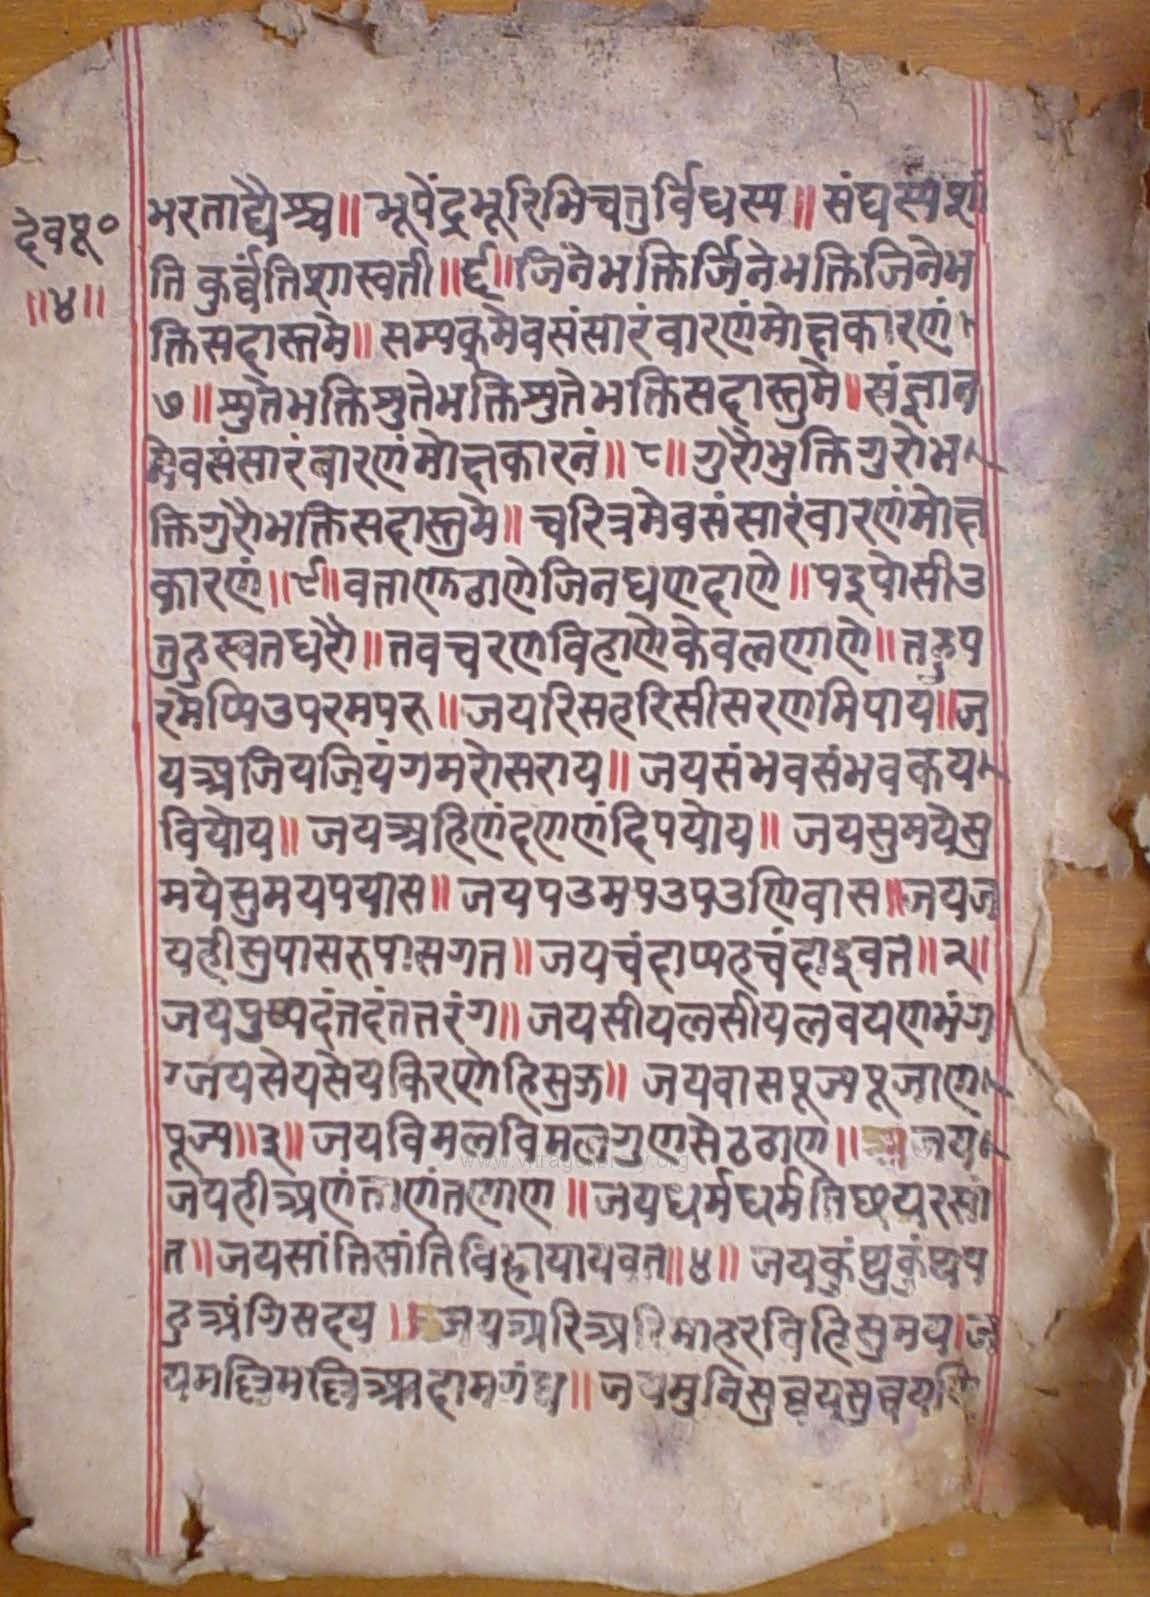 देवपू०
॥४॥
भरताद्यैश्च॥भूपेंद्रभूरिभिचतुर्विधस्य॥संघस्यशां
ति कुर्व्वंतिशास्वती॥६॥जिनेभक्तिर्जिनेभक्तिजिनेभ
क्तिसदास्तमे॥सम्यक्मेवसंसारंवारणंमोक्षकारणं
७॥श्रुतेभक्तिश्रुतेभक्तिश्रुतेभक्तिसदास्तुमे॥संज्ञान
मेवसंसारंवारणंमोक्षकारनं॥८॥गुरोभुक्तिगुरोभ
क्तिगुरौभक्तिसदास्तुमे॥चरित्रमेवसंसारंवारणंमोक्ष
कारणं॥९॥वताणुठाणेजिनधणदाणे॥पइपोसीउ
तुहुस्वतधरौ॥तवचरणविहाणेकेवलणाणे॥तहुप
रमप्पिउपरमपरु॥जयरिसहरिसीसरणमिपाय॥ज
यअजियजियंगमरोसराय॥जयसंभवसंभवकय
वियोय॥जयअहिणंदणणंदिपयोय॥जयसुमयेसु
मयेसुमयपयास॥जयपउमपउपउणिवास॥जयज
यहीसुपासरुपासगत॥जयचंदाप्पहचंदाइवत॥२॥
जयपुष्पदंतदंतत्तरंग॥जयसीयलसीयलवयणभंग
ग्जयसेयसेयकिरणोहिसुज॥जयवासपूज्यपूजाण
पूज्य॥३॥जयविमलविमलगुणसेठठाण॥जय
जयहीअणंताणंतणाण॥जयधर्मधर्मतिथ्ययरसां
त॥जयसांतिसांतिविहायायवत॥४॥जयकुंथुकुंथ्यप
हुअंगिसदय॥जयअरिअरिमाहरविहिसुमय॥ज
यमल्लिमल्लिआदामगंध॥जयमुनिसुव्वयसुव्वय